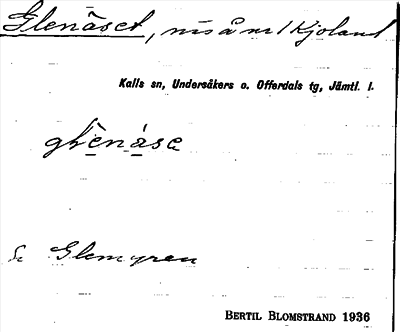 Glenåset, näs å nr 1 Kjoland
Kalls sn, Undersåkers o. Offerdals tg, Jämtl. l.
glènáse
Se Glemyren
BERTIL BLOMSTRAND 1936